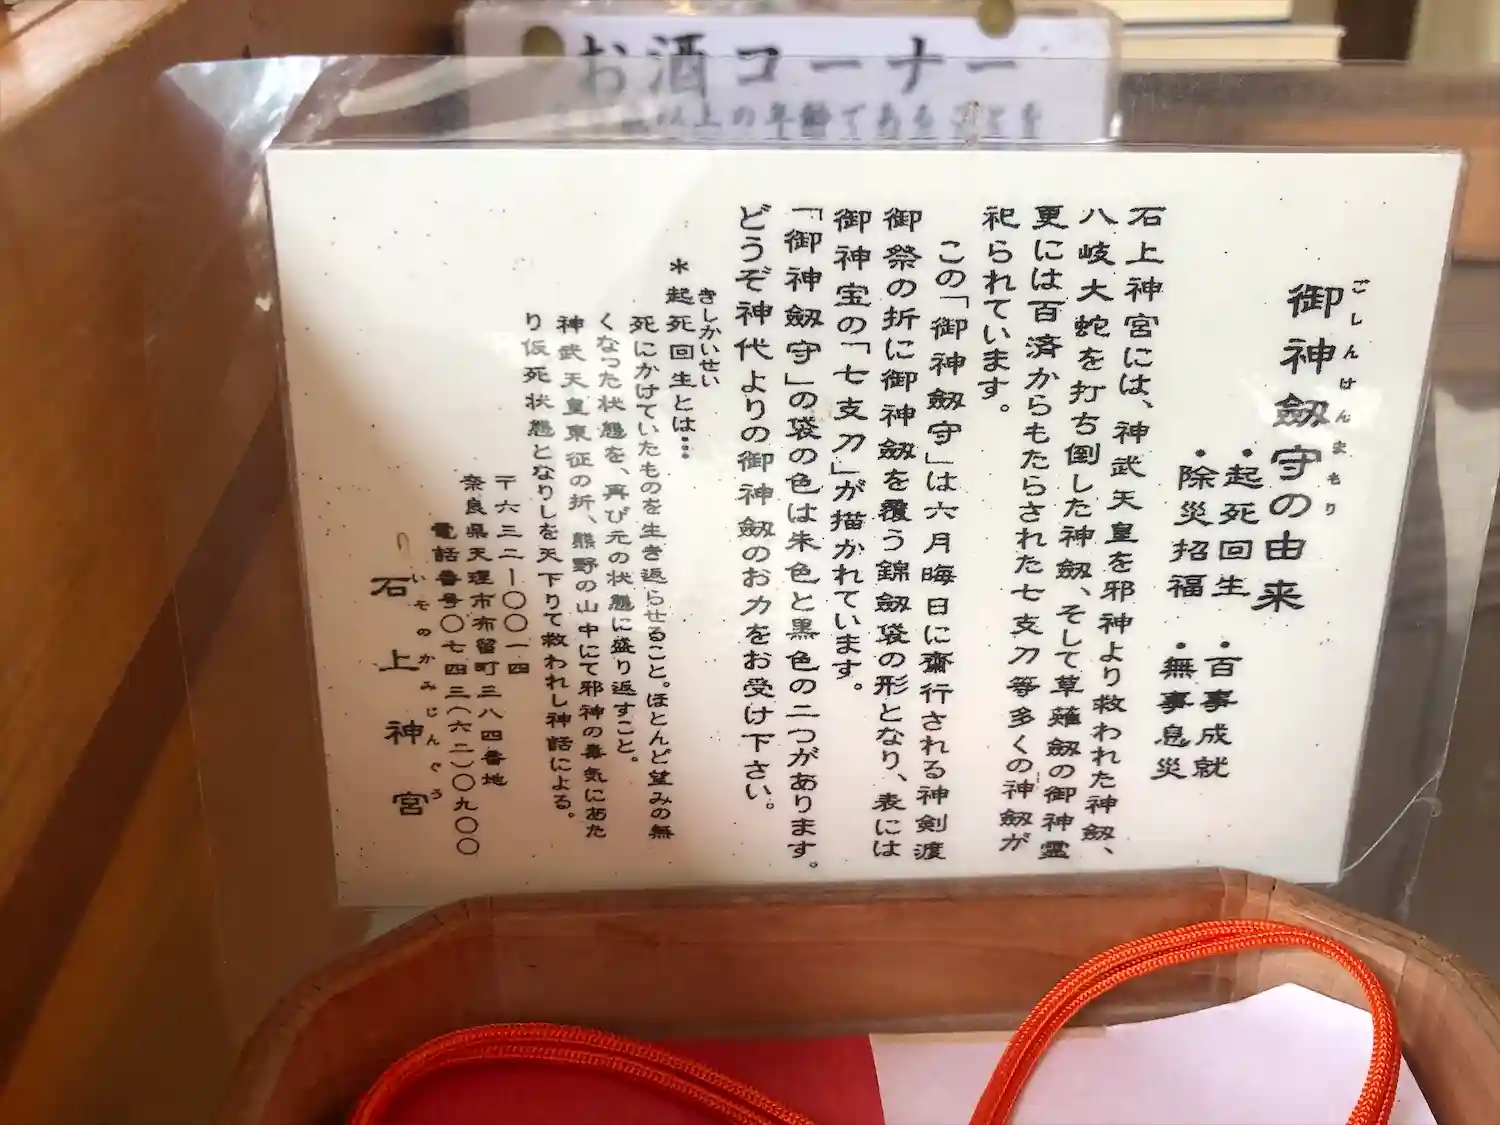 お酒コーナー
以上の年齢であることを
御神劔守の由来
ごしんけんまもり
・起死回生
・除災招福
・百事成就
・無事息災
石上神宮には、神武天皇を邪神より救われた神劔、
八岐大蛇を打ち倒した神劔、そして草薙劔の御神霊
更には百済からもたらされた七支刀等多くの神劔が
祀られています。
この「御神劔守」は六月晦日に齋行される神剣渡
御祭の折に御神劔を覆う錦劔袋の形となり、表には
御神宝の「七支刀」が描かれています。
「御神劔守」の袋の色は朱色と黒色の二つがあります。
どうぞ神代よりの御神劔のお力をお受け下さい。
きしかいせい
＊起死回生とは…
死にかけていたものを生き返らせること。ほとんど望みの無
くなった状態を、再び元の状態に盛り返すこと。
神武天皇東征の折、熊野の山中にて邪神の毒気にあた
り仮死状態となりしを天下りて救われし神話による。
〒六三二ー〇〇一四
奈良県天理市布留町三八四番地
電話番号〇七四三(六二)〇九〇〇
いそのかみじんぐう
石上神宮